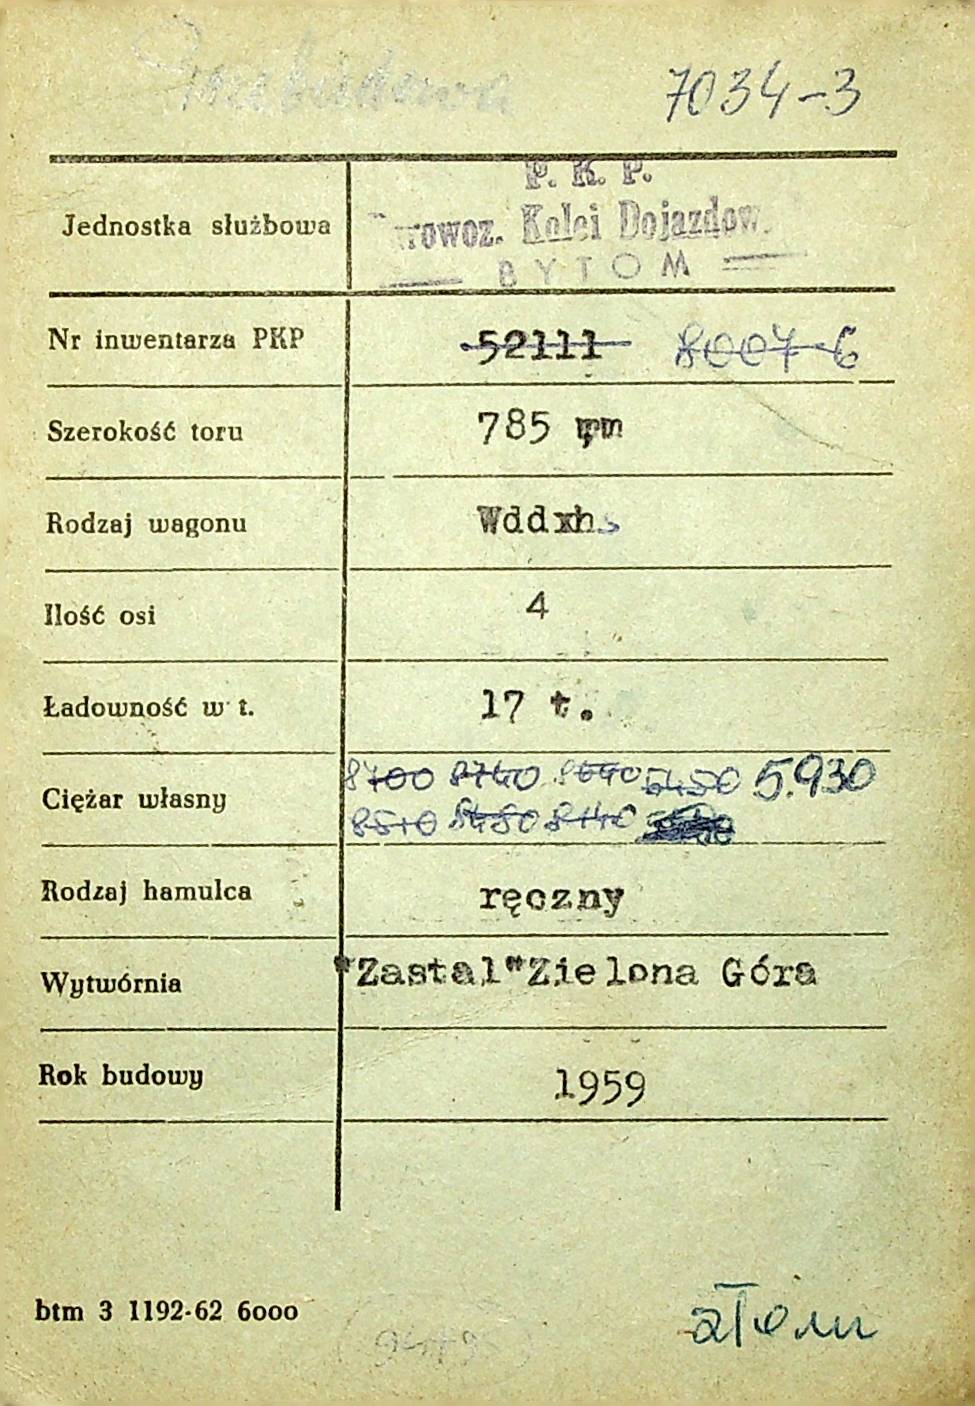 Przebudowa 7034-3
P. K. P.
Jednostka służbowa rowoz. Kolei Dojazdow.
BYTOM
Nr inwentarza PKP 52111 8007-6
Szerokość toru 785 mm
Rodzaj wagonu Wddxh
Ilość osi 4
Ładowność w t. 17 t.
8700 8740 8640 5450 5.930
Ciężar własny
8510 8480 8140
Rodzaj hamulca ręczny
Wytwórnia "Zastal" Zielona Góra
Rok budowy 1959
btm 3 1192-62 6000
złom